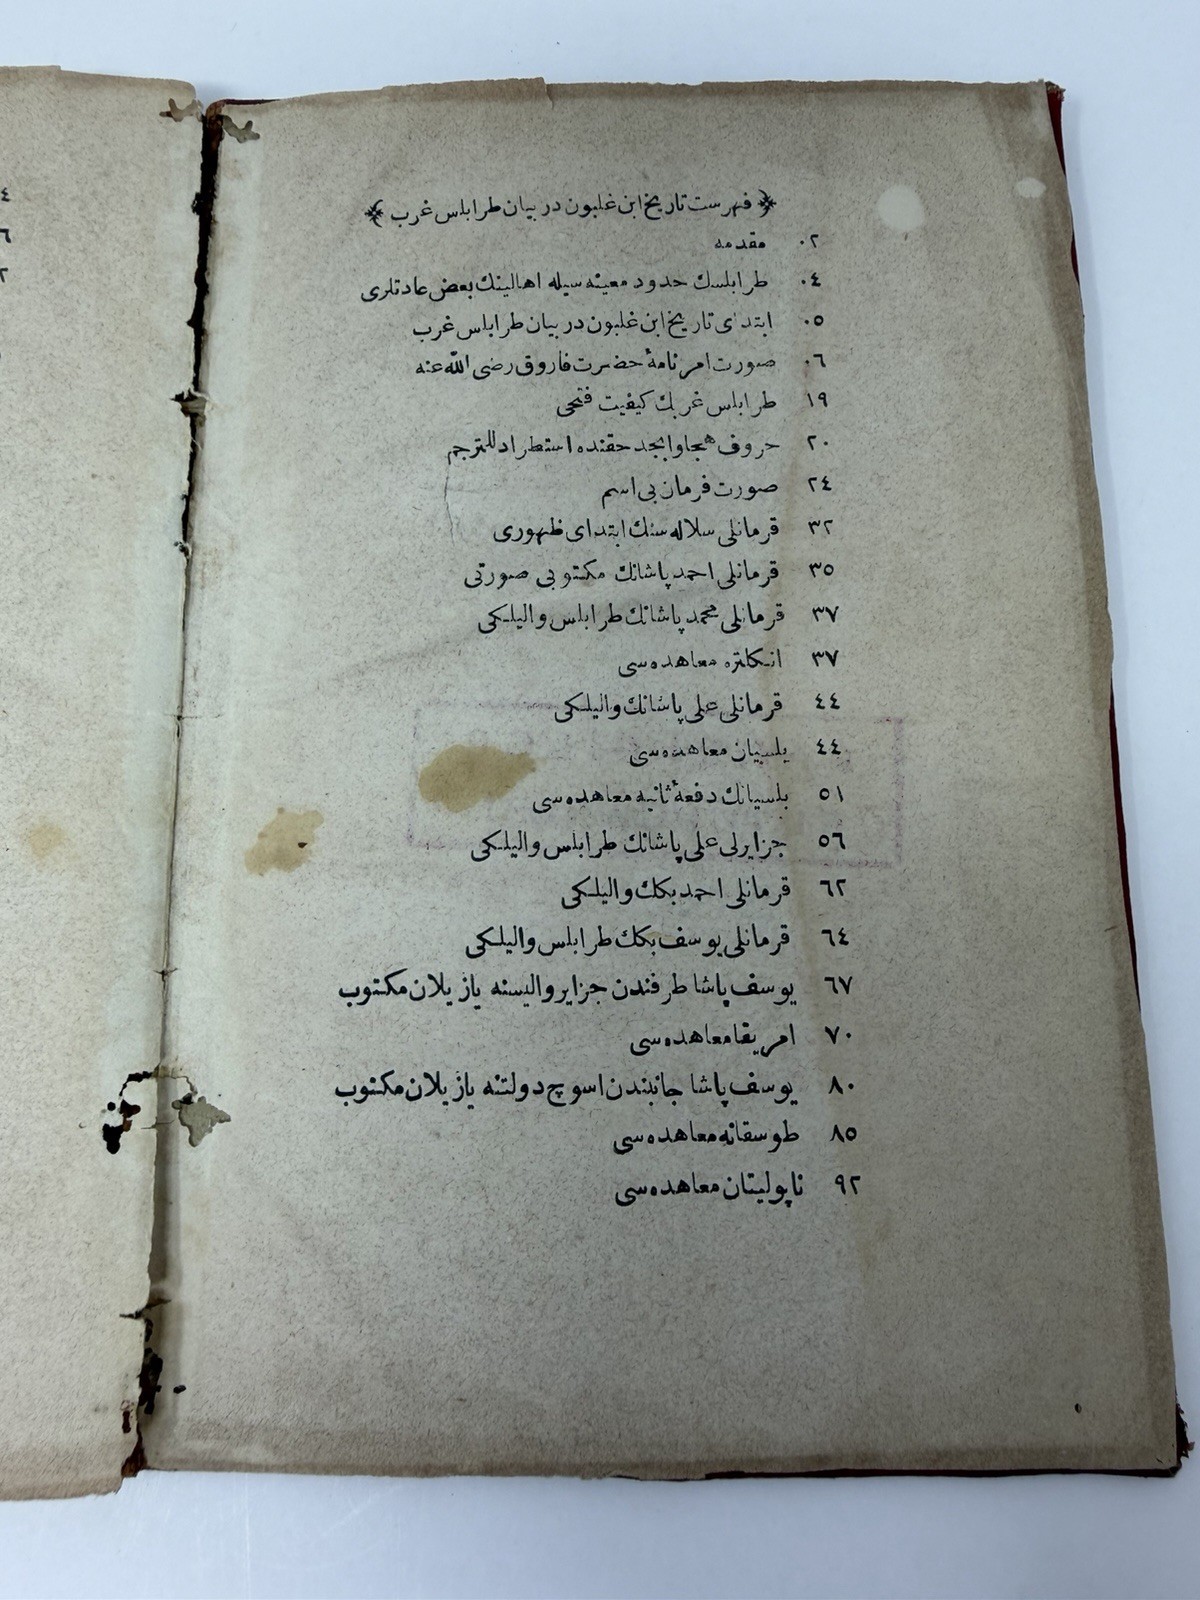 ﴿ فهرست تاريخ ابن غلبون در بيان طرابلس غرب ﴾
٠٢ مقدمه
٠٤ طرابلسك حدود معينه سيله اهالينك بعض عادتلرى
٠٥ ابتداى تاريخ ابن غلبون در بيان طرابلس غرب
٠٦ صورت امرنامۀ حضرت فاروق رضى الله عنه
١٩ طرابلس غربك كيفيت فتحى
٢٠ حروف هجا وابجد حقنده استطراد للمترجم
٢٤ صورت فرمان بى اسم
٣٢ قرمانلى سلاله سنك ابتداى ظهورى
٣٥ قرمانلى احمد پاشانك مكتوبى صورتى
٣٧ قرمانلى محمد پاشانك طرابلس واليلكى
٣٧ انكلتره معاهده سى
٤٤ قرمانلى على پاشانك واليلكى
٤٤ بلسيان معاهده سى
٥١ بلسيانك دفعۀ ثانيه معاهده سى
٥٦ جزايرلى على پاشانك طرابلس واليلكى
٦٢ قرمانلى احمد بكك واليلكى
٦٤ قرمانلى يوسف بكك طرابلس واليلكى
٦٧ يوسف پاشا طرفندن جزاير واليسنه يازيلان مكتوب
٧٠ امريقا معاهده سى
٨٠ يوسف پاشا جانبندن اسوچ دولتنه يازيلان مكتوب
٨٥ طوسقانه معاهده سى
٩٢ ناپوليتان معاهده سى